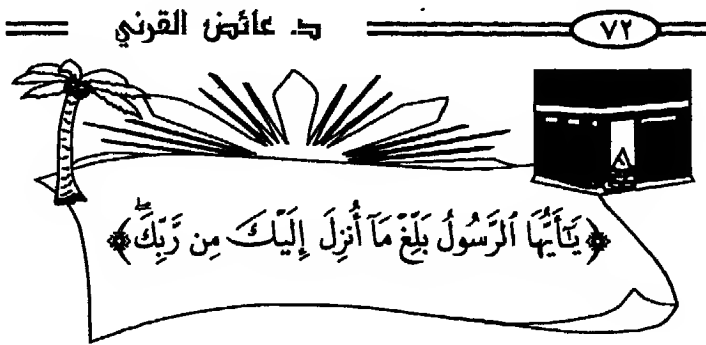 ٧٢ د. عائض القرني
﴿يَٰٓأَيُّهَا ٱلرَّسُولُ بَلِّغۡ مَآ أُنزِلَ إِلَيۡكَ مِن رَّبِّكَۖ﴾